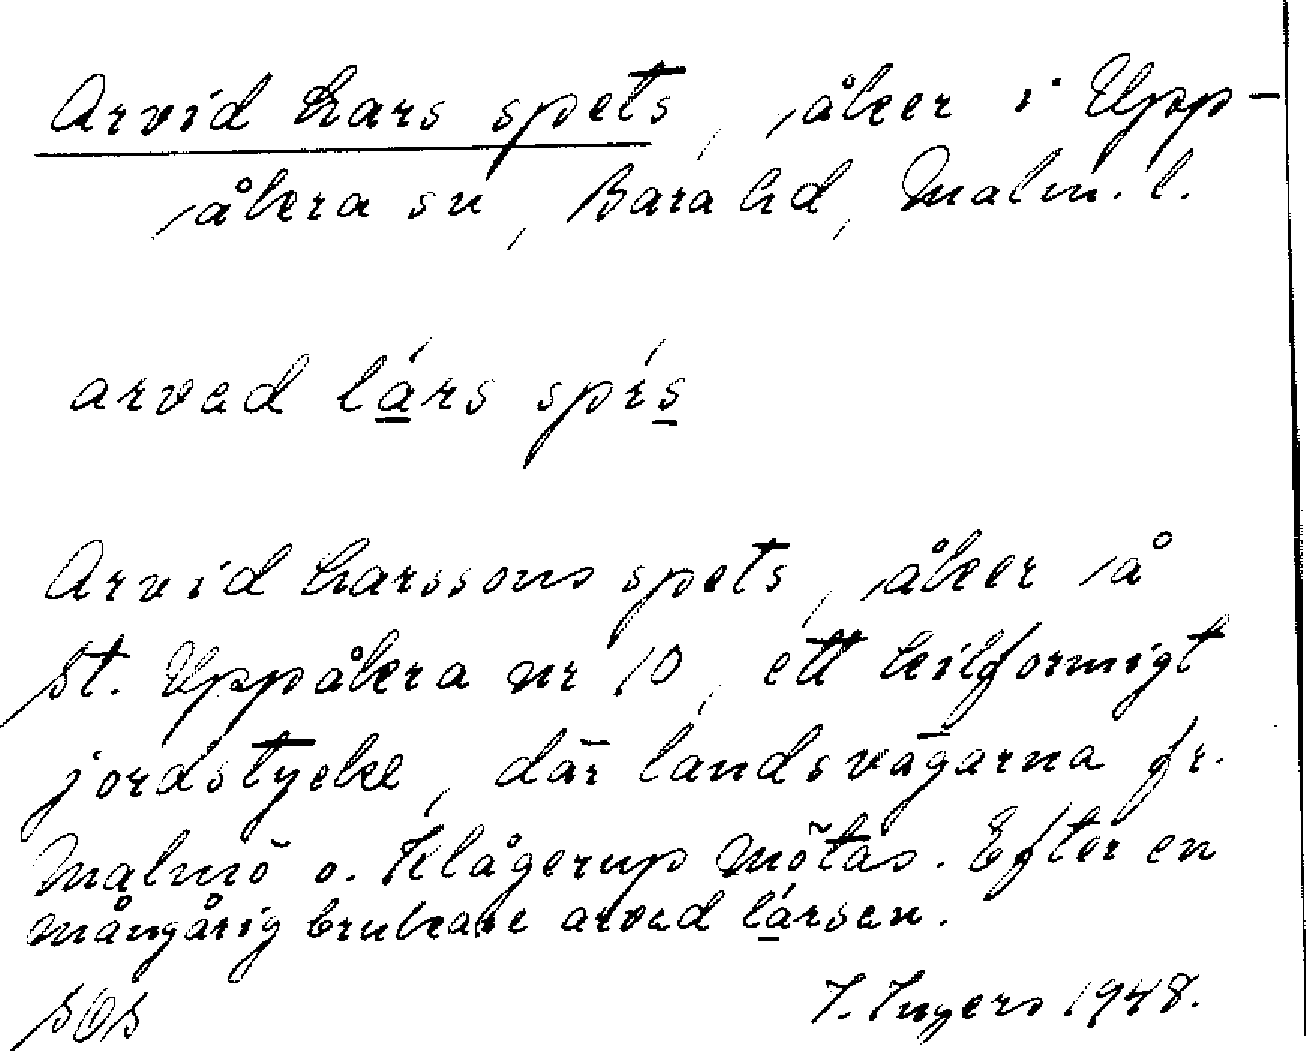 Arvid Lars spets, åker i Upp-
åkra sn, Bara hd, Malm. l.
arvad lárs spís
Arvid Larssons spets, åker å
St. Uppåkra nr 10, ett kilformigt
jordstycke, där landsvägarna fr.
Malmö o. Klågerup mötas. Efter en
mångårig brukare arvad lársen.
I. Ingers 1948.